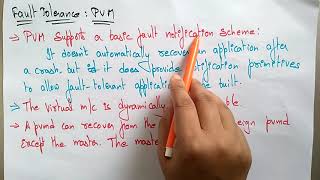 Fault Tolerance: PVM
→ PVM supports a basic fault notification scheme:
It doesn't automatically recover an application after
a crash but it does provide notification primitives
to allow fault-tolerant application be built.
→ The virtual m/c is dynamically ble.
→ A pvmd can recover from the eign pvmd
Except the master. The master